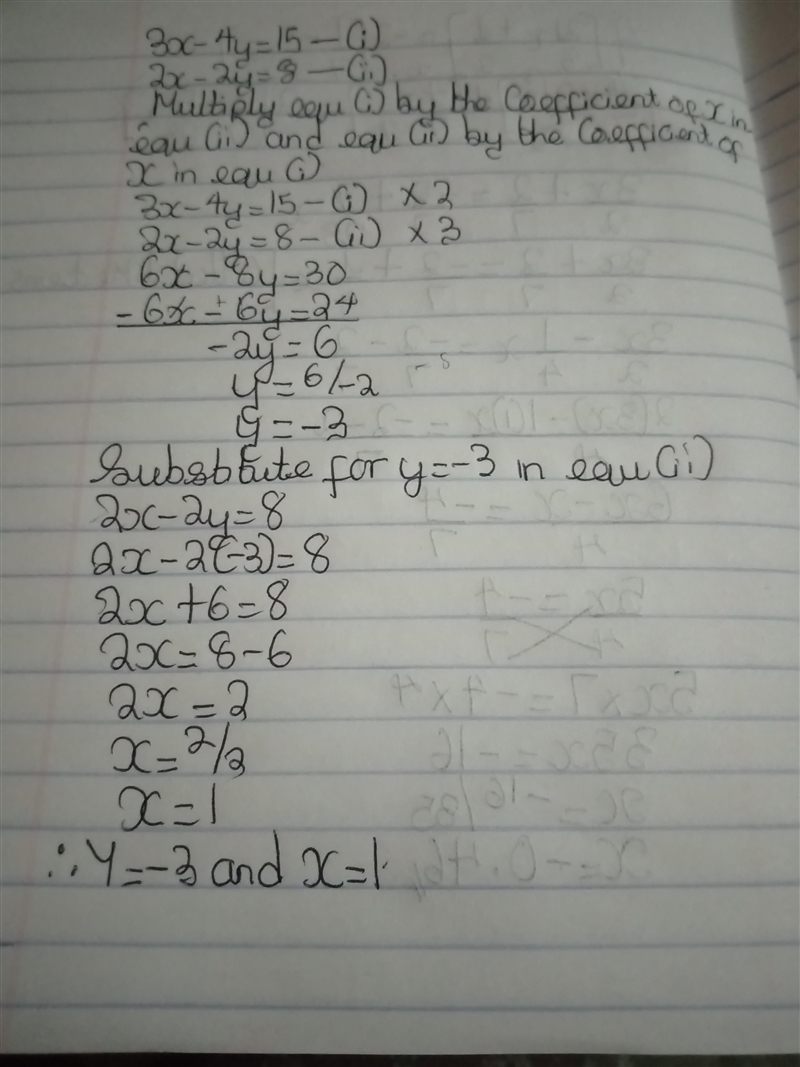 3x-4y=15-(i)
2x-2y=8-(ii)
Multiply equ(i) by the Coefficient of x in
equ(ii) and equ(ii) by the Coefficient of
x in equ(i)
3x-4y=15-(i) ×2
2x-2y=8-(ii) ×3
6x-8y=30
-6x-+6y=24
-2y=6
y=6/-2
y=-3
Substitute for y=-3 in equ(ii)
2x-2y=8
2x-2(-3)=8
2x+6=8
2x=8-6
2x=2
x=2/2
x=1
∴Y=-3 and x=1.